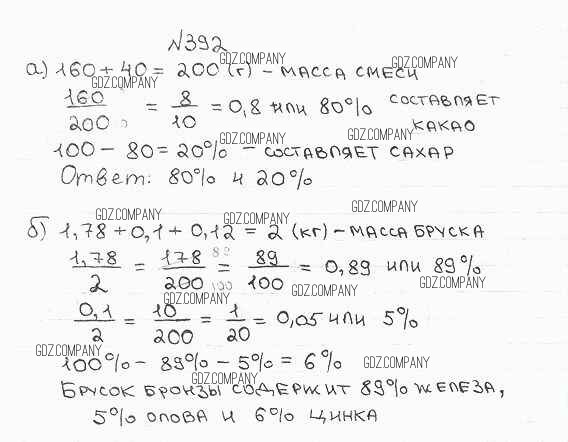 №392
а) 160 + 40 = 200 (г) – МАССА СМЕСИ
160/200 = 8/10 = 0,8 или 80% СОСТАВЛЯЕТ
КАКАО
100 – 80 = 20% – СОСТАВЛЯЕТ САХАР
Ответ: 80% и 20%
б) 1,78 + 0,1 + 0,12 = 2 (кг) – МАССА БРУСКА
1,78/2 = 178/200 = 89/100 = 0,89 или 89%
0,1/2 = 10/200 = 1/20 = 0,05 или 5%
100% – 89% – 5% = 6%
БРУСОК БРОНЗЫ СОДЕРЖИТ 89% ЖЕЛЕЗА,
5% ОЛОВА И 6% ЦИНКА
GDZ.COMPANY
GDZ.COMPANY
GDZ.COMPANY
GDZ.COMPANY
GDZ.COMPANY
GDZ.COMPANY
GDZ.COMPANY
GDZ.COMPANY
GDZ.COMPANY
GDZ.COMPANY
GDZ.COMPANY
GDZ.COMPANY
GDZ.COMPANY
GDZ.COMPANY